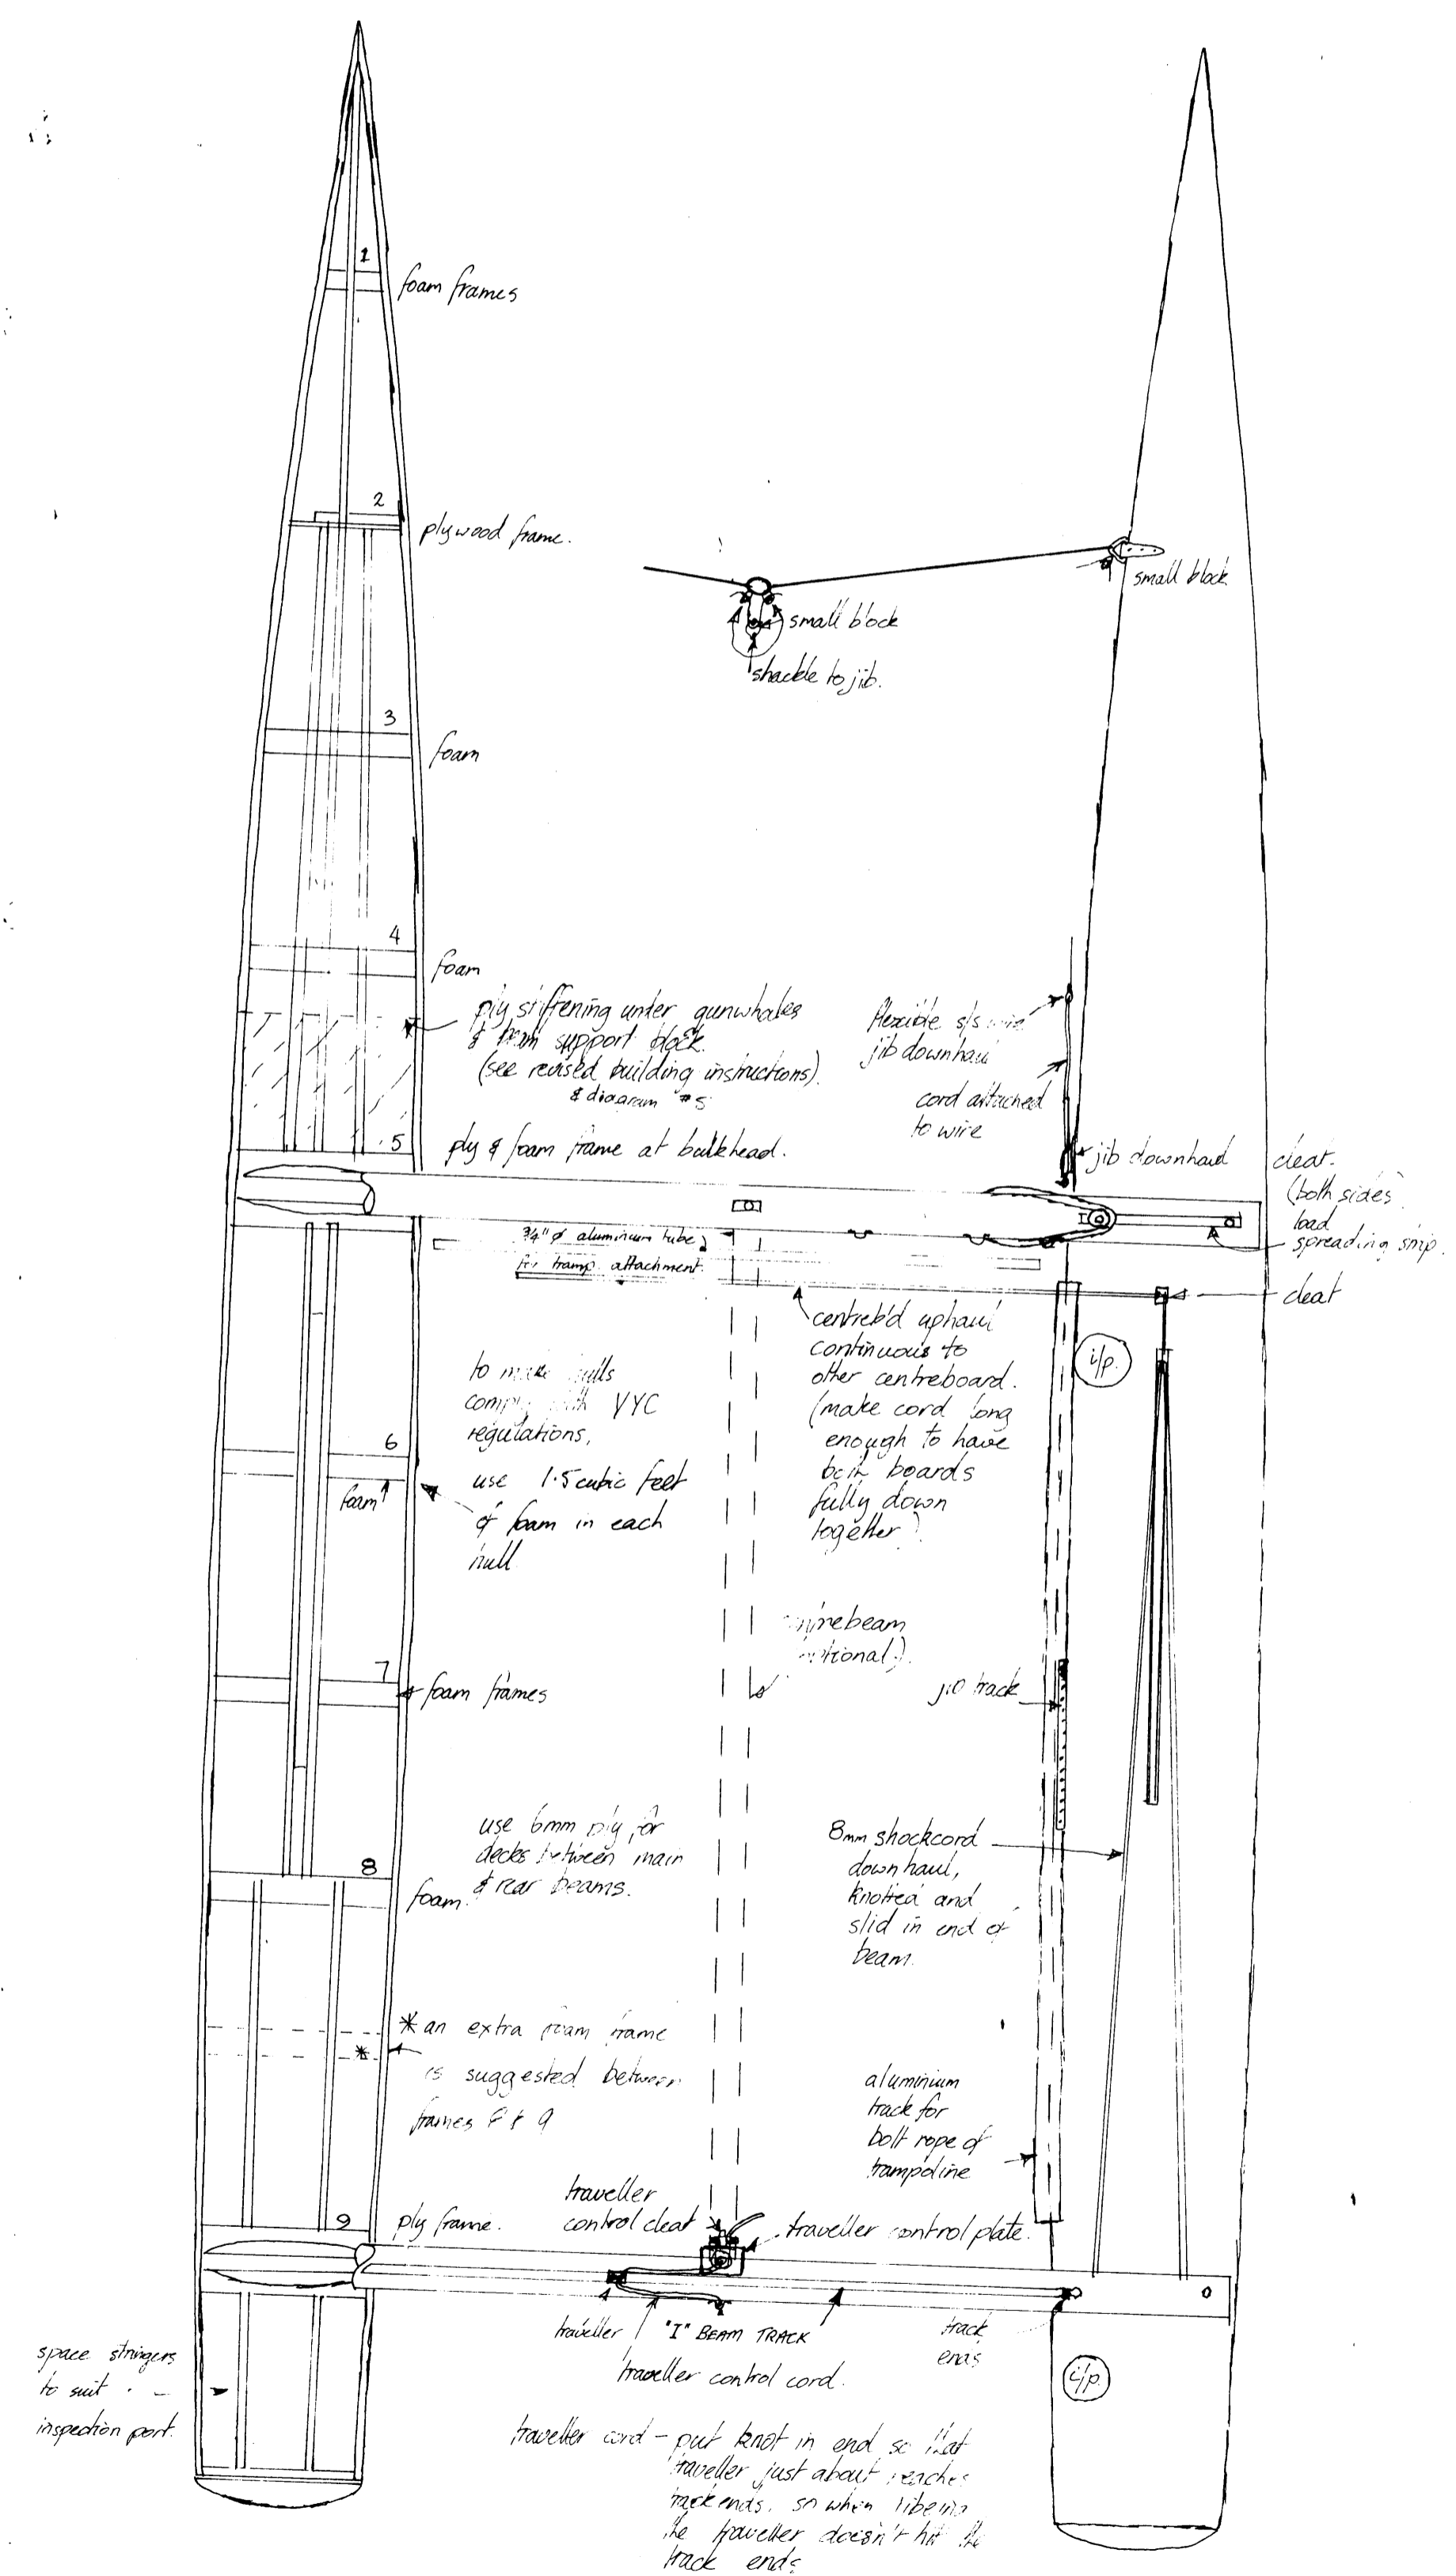 1
foam frames
2
plywood frame.
small block
small block
shackle to jib.
3
foam
4
foam
ply stiffening under gunwhales
& beam support block.
(see revised building instructions).
& diagram #5
flexible s/s wire
jib downhaul
cord attached
to wire
5
ply & foam frame at bulkhead.
jib downhaul
cleat.
(both sides)
load
spreading strip.
3/4" ø aluminium tube
for tramp. attachment.
cleat
centreb'd uphaul
continuous to
other centreboard.
(make cord long
enough to have
both boards
fully down
together)
i/p.
to make hulls
comply with YYC
regulations,
use 1.5 cubic feet
of foam in each
hull
6
foam
7
foam frames
(optional).
jib track
use 6mm ply for
decks between main
& rear beams.
8
foam.
8mm shockcord
downhaul,
knotted and
slid in end of
beam.
* an extra foam frame
is suggested between
frames 8 & 9
*
aluminium
track for
bolt rope of
trampoline
9
ply frame.
traveller
control cleat
traveller control plate.
traveller
"I" BEAM TRACK
track
ends
traveller control cord.
i/p.
space stringers
to suit
inspection port.
traveller cord - put knot in end so that
traveller just about reaches
track ends. so when
the traveller doesn't hit the
track ends